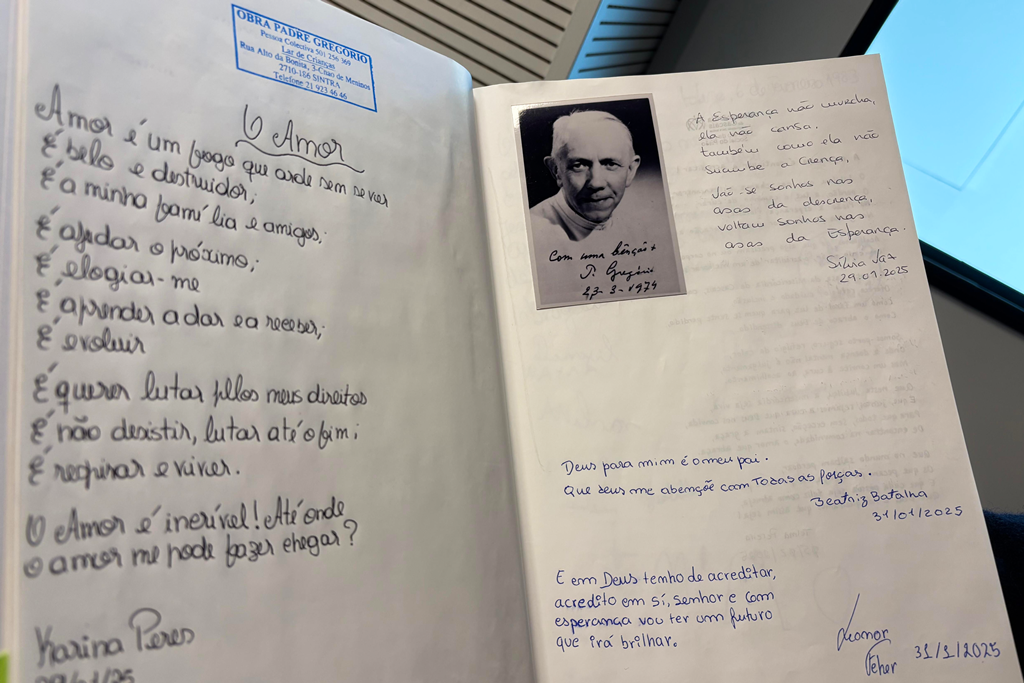 OBRA PADRE GREGÓRIO
Pessoa Colectiva 501 256 369
Lar de Crianças
Rua Alto da Bonita, 3-Chão de Meninos
2710-186 SINTRA
Telefone 21 923 46 46
O Amor
Amor é um fogo que arde sem se ver
É belo e destruidor;
É a minha família e amigos;
É ajudar o próximo;
É elogiar-me
É aprender a dar e a receber;
É evoluir
É querer lutar pllos meus direitos
É não desistir, lutar até o fim;
É respirar e viver.
O Amor é incrível! Até onde
o amor me pode fazer chegar?
Karina Peres
Com uma bênção +
P. Gregório
23-3-1974
A Esperança não murcha,
ela não cansa.
também como ela não
sucumbe a Crença,
Vão-se sonhos nas
asas da descrença,
voltam sonhos nas
asas da Esperança.
Sílvia Vaz
29.01.2025
Deus para mim é o meu pai.
Que deus me abençõe com Todas as forças.
Beatriz Batalha
31/01/2025
E em Deus tenho de acreditar,
acredito em sí, senhor e com
esperança vou ter um futuro
que irá brilhar.
Leonor
Feher
31/1/2025